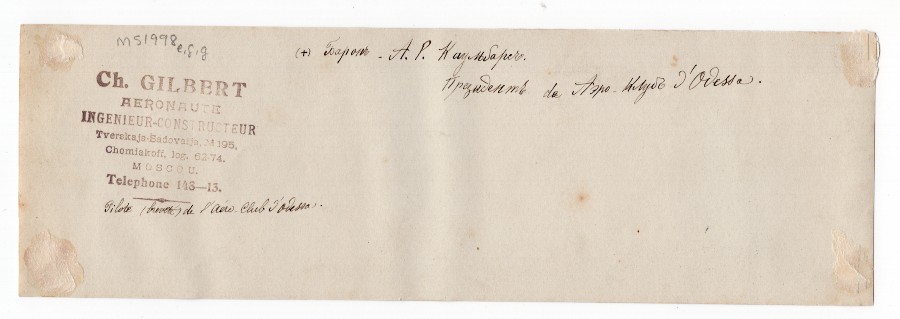 MS1998 e, f, g
(+) Баронъ - А. Р. Каульбарсъ.
Президентъ de Аэро-Клубъ d'Odessa.
Ch. GILBERT
AERONAUTE
INGENIEUR-CONSTRUCTEUR
Tverskaja-Sadovaija, № 195,
Chomiakoff, log. 62-74.
MOSCOU.
Telephone 148—13.
Pilote (breveté) de l'Aéro. Club d'Odessa.